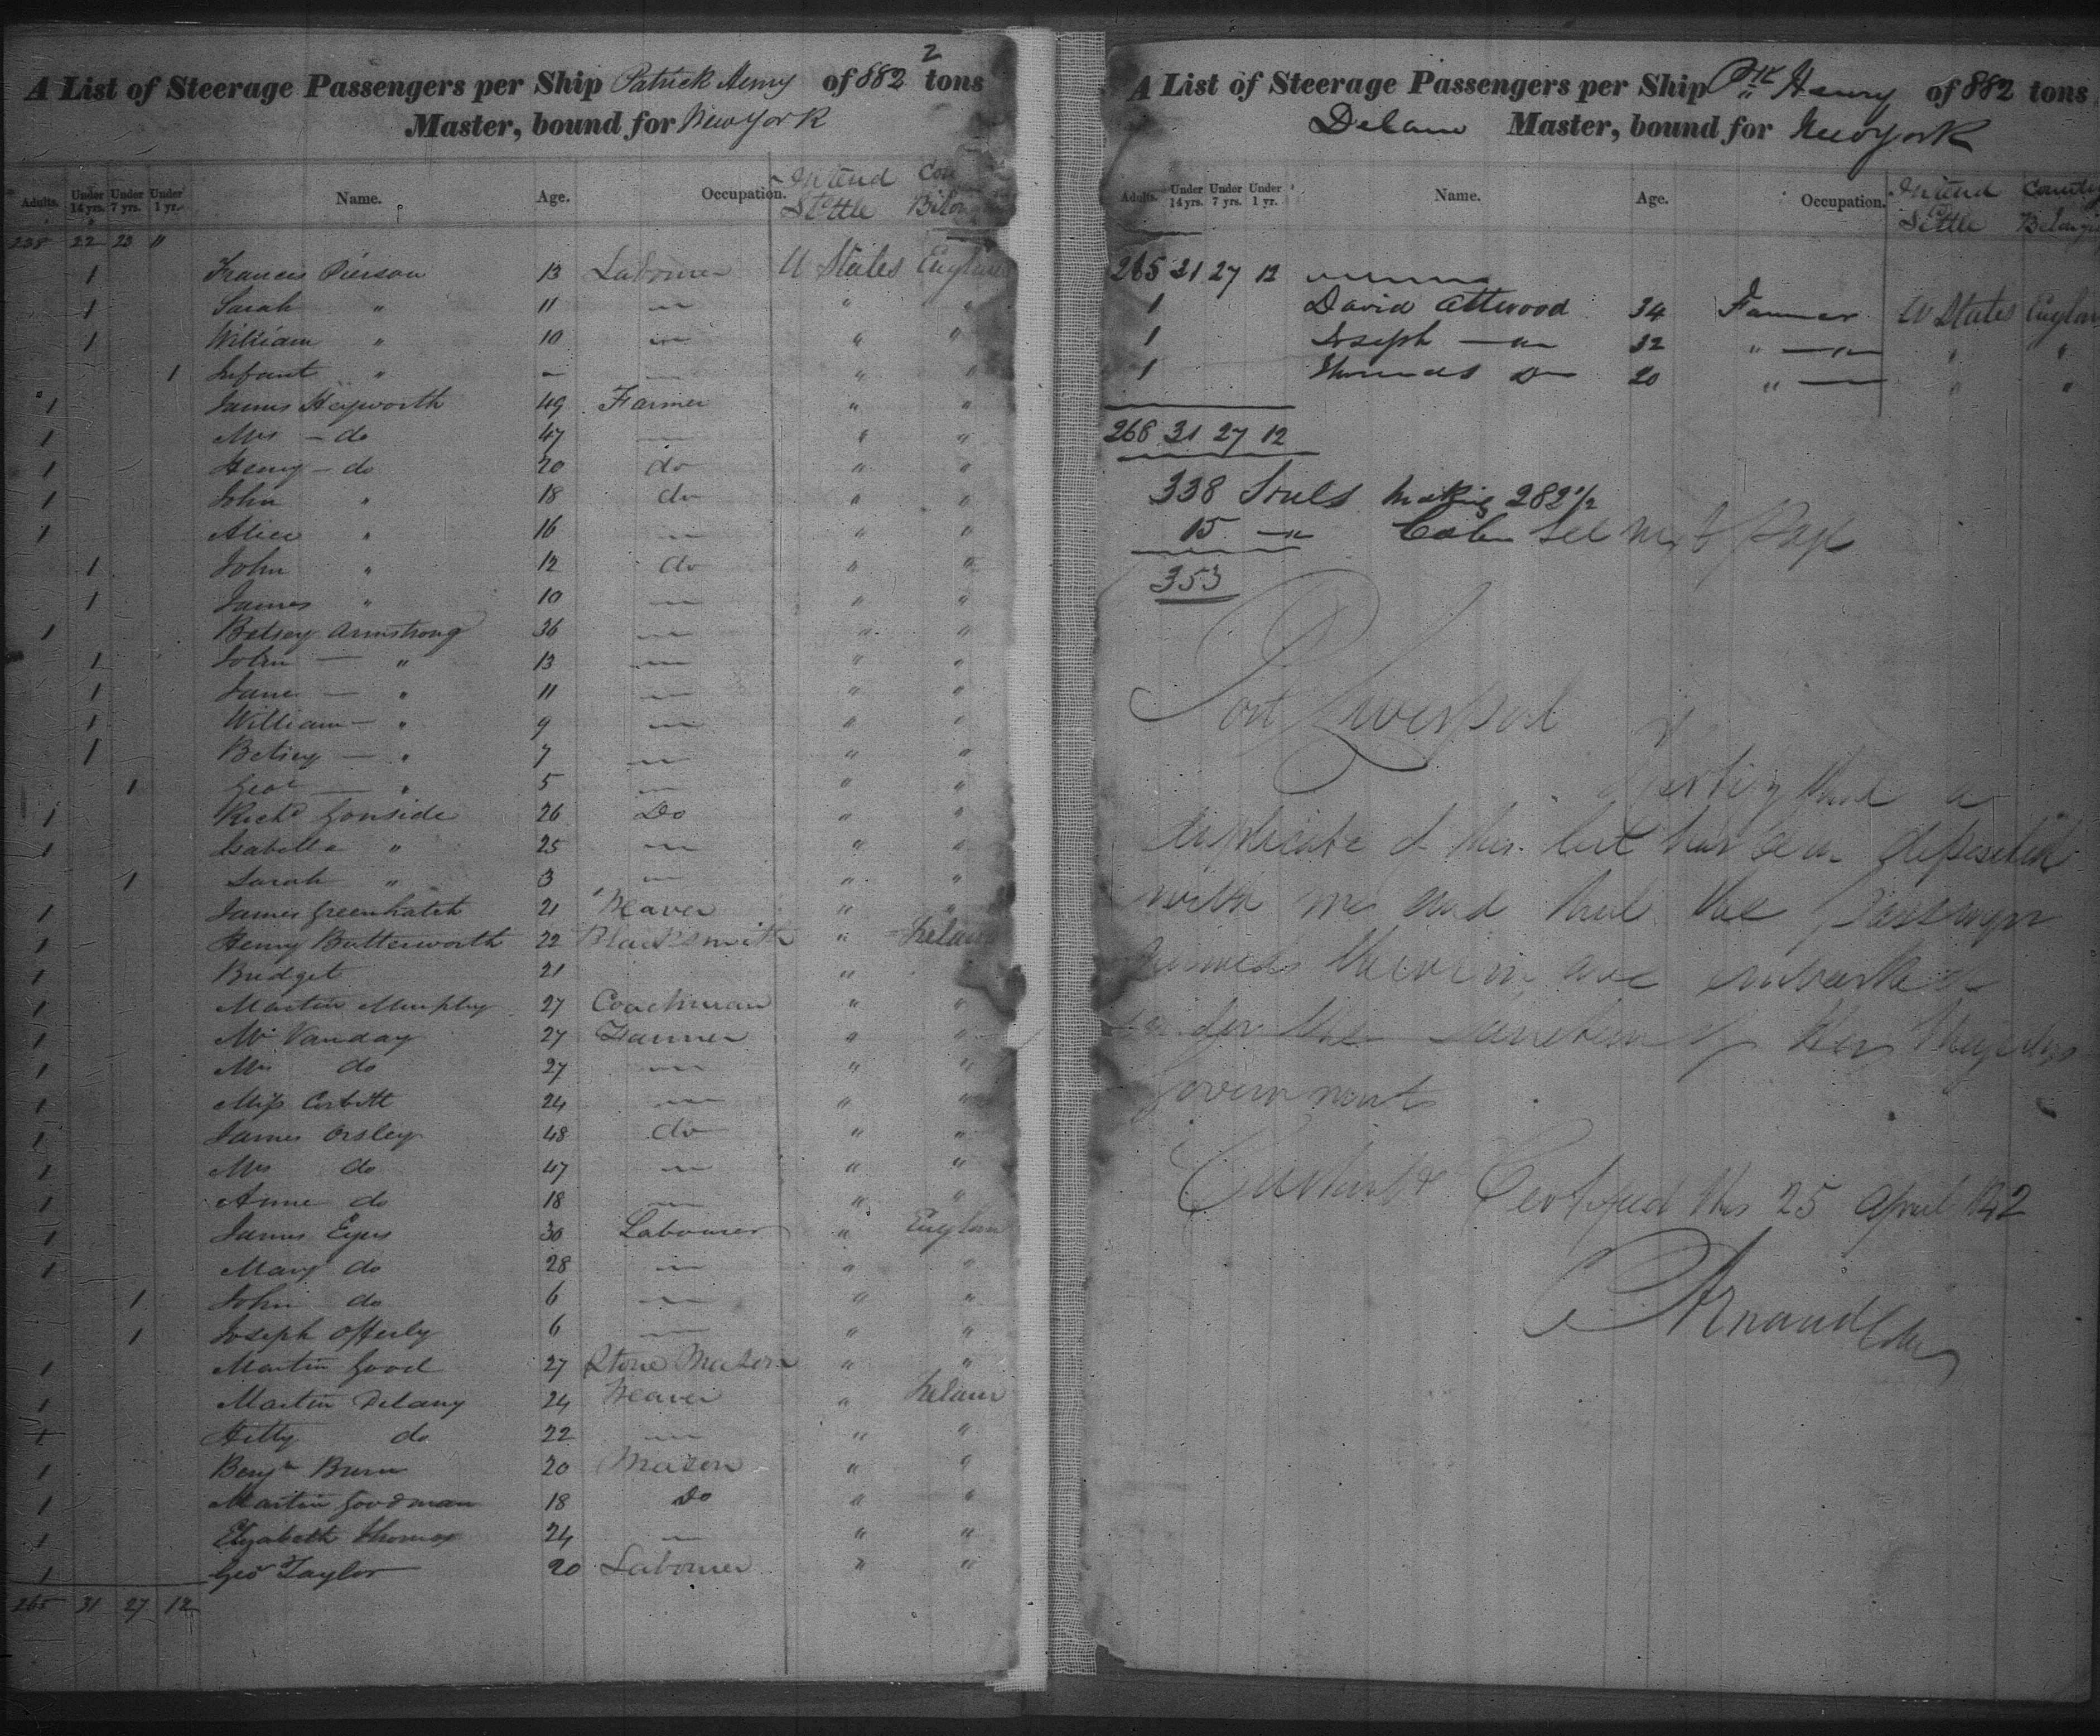 2
A List of Steerage Passengers per Ship Patrick Henry of 882 tons
Master, bound for New York
Adults. Under 14 yrs. Under 7 yrs. Under 1 yr. Name. Age. Occupation. Intend Settle Cou Belon
238 22 23 "
1 Frances Pierson 13 Labourer U States England
1 Sarah " 11 — " "
1 William " 10 — " "
1 Infant " — — " "
1 James Heyworth 49 Farmer " "
1 Mrs — do 47 — " "
1 Henry — do 20 do " "
1 John " 18 do " "
1 Alice " 16 — " "
1 John " 12 do " "
1 James " 10 — " "
1 Betsey Armstrong 36 — " "
1 John — " 13 — " "
1 Jane — " 11 — " "
1 William — " 9 — " "
1 Betsey — " 7 — " "
1 Geoe — " 5 — " "
1 Richd Gonside 26 Do " "
1 Isabella " 25 — " "
1 Sarah " 3 — " "
1 James Greenhatch 21 Weaver " "
1 Henry Butterworth 22 Blacksmith " Ireland
1 Bridget 21 "
1 Martin Murphy 27 Coachman " "
1 Mr Vanday 27 Farmer " "
1 Mrs do 27 — " "
1 Miss Corbett 24 — " "
1 James Orsley 48 do " "
1 Mrs do 47 — " "
1 Anne do 18 — " "
1 James Eyes 30 Labourer " Englan
1 Mary do 28 — " "
1 John do 6 — " "
1 Joseph Offerly 6 — " "
1 Martin Good 27 Stone Mason " "
1 Martin Delany 24 Weaver " Irelan
1 Hetty do 22 — " "
1 Benjn Burn 20 Mason " "
1 Martin Goodman 18 Do " "
1 Elizabeth Thomas 24 — " "
1 Geo Taylor 20 Labourer " "
265 31 27 12
A List of Steerage Passengers per Ship Pk Henry of 882 tons
Delano Master, bound for New York
Adults. Under 14 yrs. Under 7 yrs. Under 1 yr. Name. Age. Occupation. Intend Settle Country Belong
265 31 27 12
1 David Attwood 34 Farmer U States Englan
1 Joseph — " — 32 " — " — " "
1 Thomas Do 20 " — " "
268 31 27 12
338 Souls making 282 1/2
15 — " Cabin see next Page
353
Port Liverpool
I certify that a
duplicate of this list has been deposited
with me and that the Passengers
named therein are embarked
under the sanction of Her Majestys
Government
Certified this 25 April 1842
Arnaud